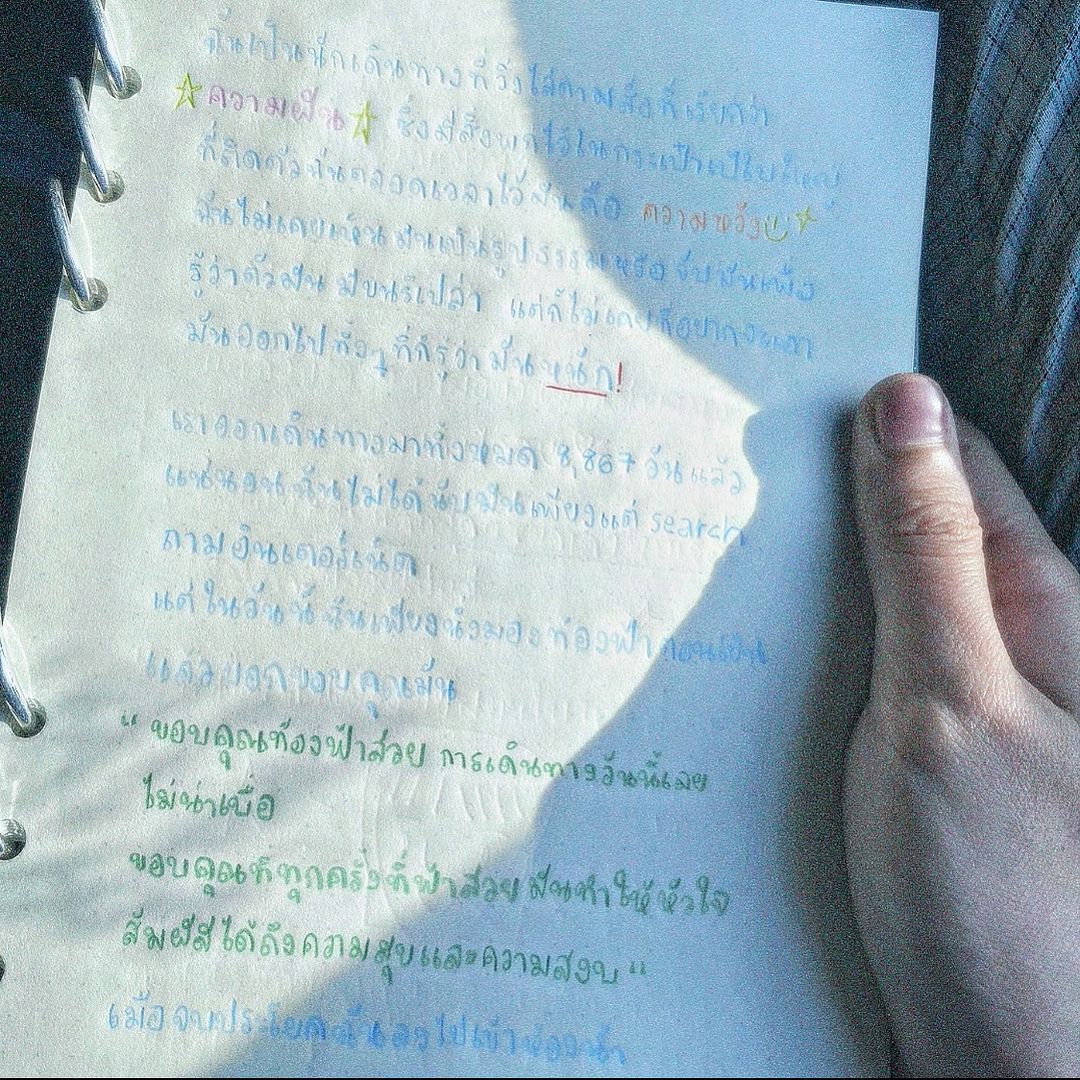 ฉันเป็นนักเดินทางที่วิ่งไล่ตามสิ่งที่เรียกว่า
☆ความฝัน☆ ซึ่งมีสิ่งพกไว้ในกระเป๋าเป้ใบใหญ่
ที่ติดตัวฉันตลอดเวลาไว้มันคือ ความหวัง
ฉันไม่เคยเห็นมันเป็นรูปธรรมหรือจับมันเพื่อ
รู้ว่าตัวมันมีขนรึเปล่า แต่ก็ไม่เคยที่อยากจะเอา
มันออกไปทิ้งๆที่ก็รู้ว่ามันหนัก!
เราออกเดินทางมาทั้งหมด 8,867 วันแล้ว
แน่นอนฉันไม่ได้นับมันเพียงแต่ search
ถามอินเตอร์เน็ต
แต่ในวันนี้ฉันเพียงนั่งมองท้องฟ้าตอนเย็น
แล้วบอกขอบคุณมัน
"ขอบคุณท้องฟ้าสวย การเดินทางวันนี้เลย
ไม่น่าเบื่อ
ขอบคุณที่ทุกครั้งที่ฟ้าสวยมันทำให้หัวใจ
สัมผัสได้ถึงความสุขและความสงบ"
เมื่อจบประโยคฉันลงไปเข้าห้องน้ำ